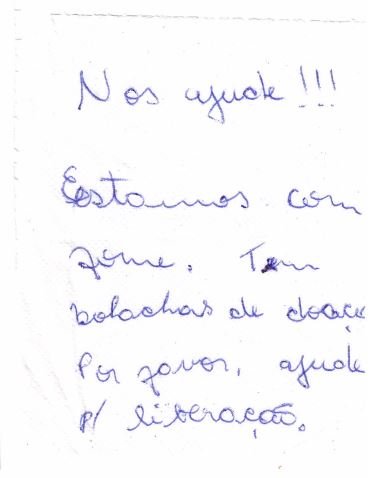 Nos ajude!!!
Estamos com
fome. Tem
bolachas de doaçã
Por favor, ajude
p/ liberação.